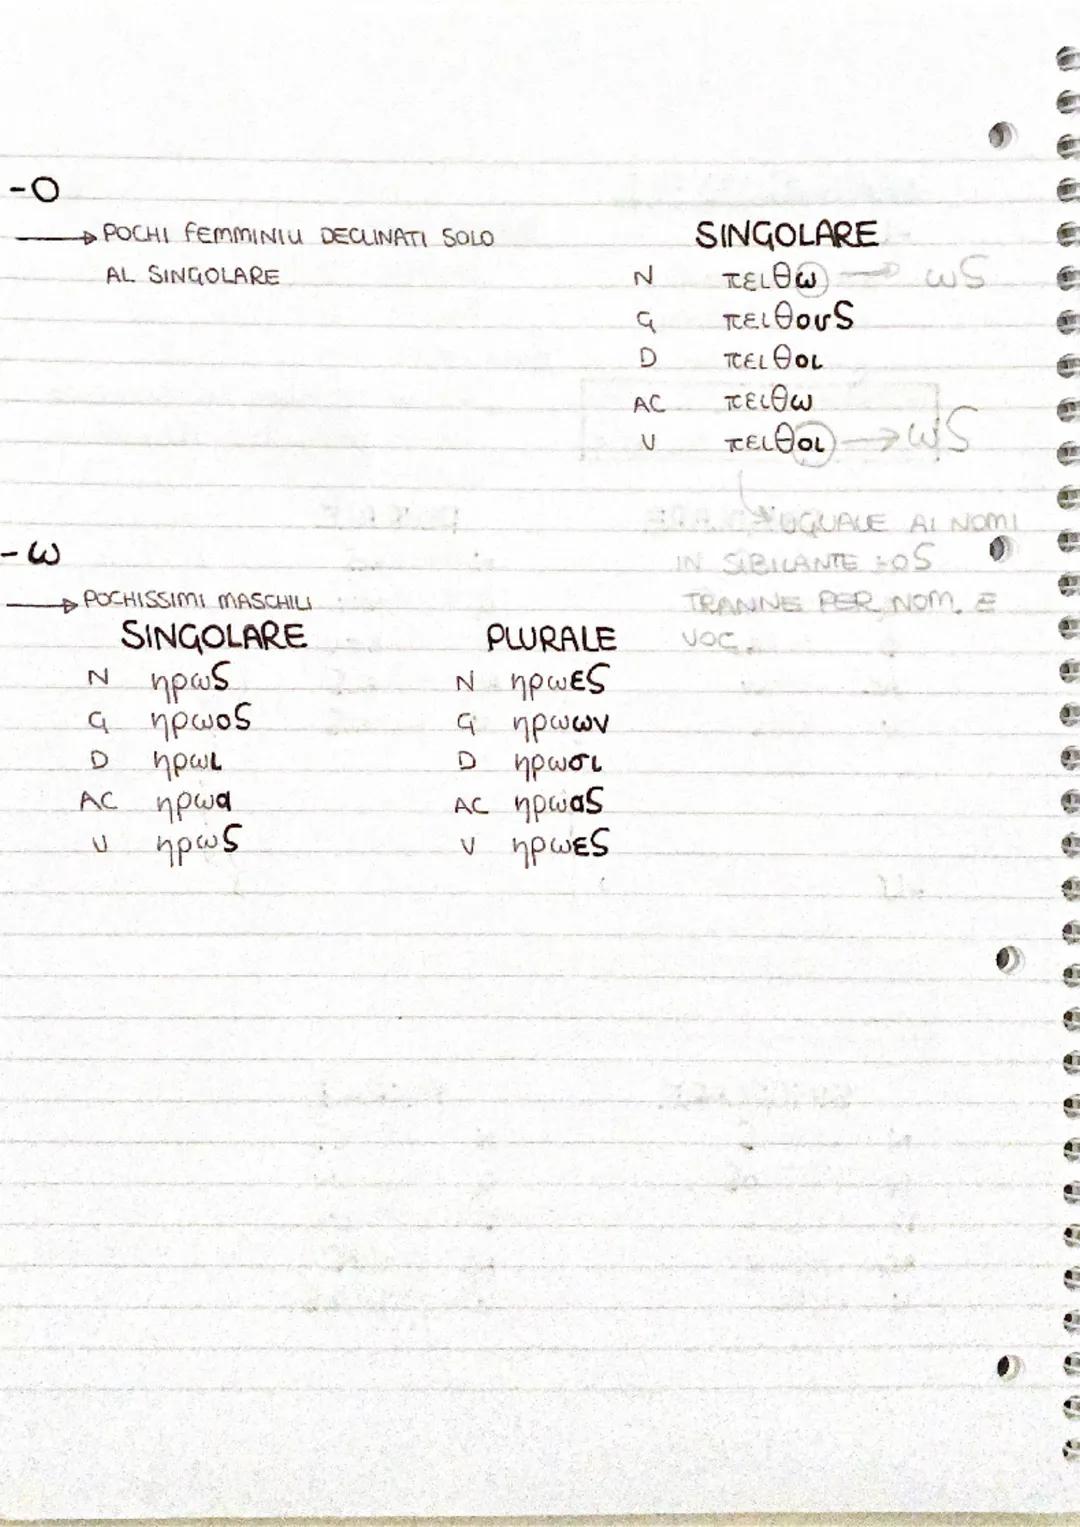 -O
→ POCHI FEMMINILI DECLINATI SOLO
AL SINGOLARE
SINGOLARE
N πειθω → ως
G πειθους
D πειθοι
AC πειθω
V πειθοι → ως
UGUALE AI NOMI
IN SIBILANTE -OS
TRANNE PER NOM. E
VOC.
-ω
→ POCHISSIMI MASCHILI
SINGOLARE
N ηρως
G ηρωος
D ηρωι
AC ηρωα
V ηρως
PLURALE
N ηρωες
G ηρωων
D ηρωσι
AC ηρωας
V ηρωες